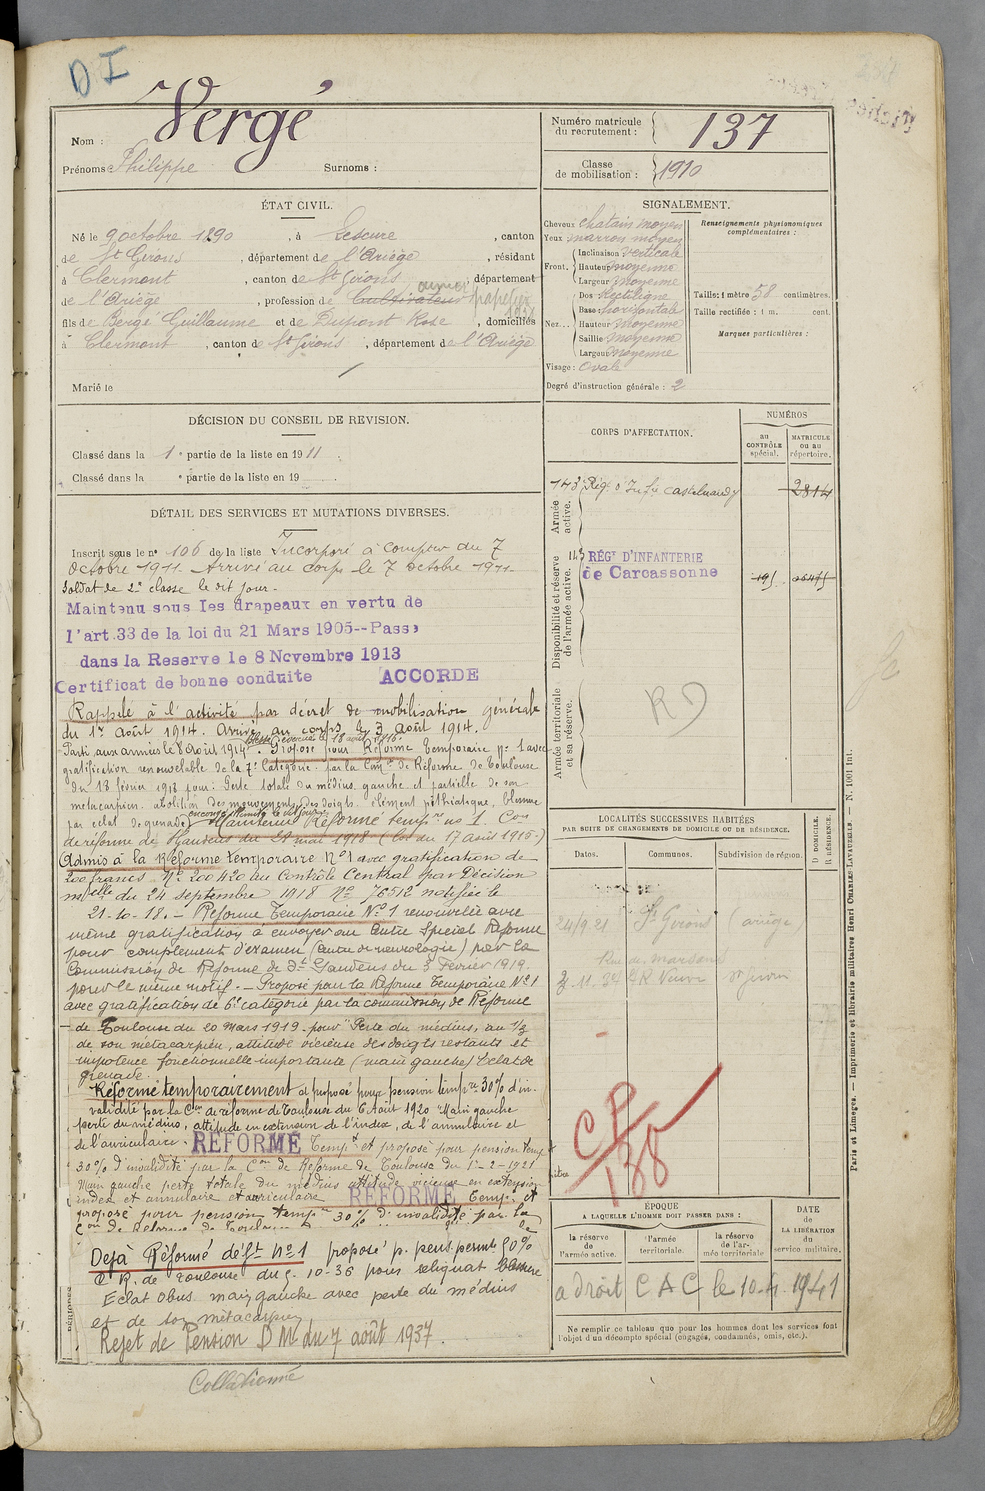 D I
Nom : Vergé
Prénoms : Philippe Surnoms :
Numéro matricule du recrutement : 137
Classe de mobilisation : 1910
ÉTAT CIVIL.
Né le 9 octobre 1890, à Lescure, canton
de St Girons, département de l'Ariège, résidant
à Clermont, canton de St Girons, département
de l'Ariège, profession de Cultivateur papetier
fils de Bergé Guillaume et de Dupont Rose, domiciliés
à Clermont, canton de St Girons, département de l'Ariège
Marié le
SIGNALEMENT.
Cheveux chatain moyen
Yeux marron moyen
Front. Inclinaison verticale
Hauteur moyenne
Largeur moyenne
Nez... Dos Rectiligne
Base : horizontale
Hauteur moyenne
Saillie moyenne
Largeur moyenne
Visage : ovale
Degré d'instruction générale : 2
Renseignements physionomiques complémentaires :
Taille : 1 mètre 58 centimètres.
Taille rectifiée : 1 m. cent.
Marques particulières :
DÉCISION DU CONSEIL DE REVISION.
Classé dans la 1e partie de la liste en 1911.
Classé dans la e partie de la liste en 19
DÉTAIL DES SERVICES ET MUTATIONS DIVERSES.
Inscrit sous le n° 106 de la liste Incorporé à compter du 7
octobre 1911 Arrivé au corps le 7 octobre 1911
Soldat de 2e classe le dit jour.
Maintenu sous les drapeaux en vertu de
l'art.33 de la loi du 21 Mars 1905--Passé
dans la Reserve le 8 Novembre 1913
Certificat de bonne conduite ACCORDE
Rappelé à l'activité par décret de mobilisation générale
du 1er Août 1914. Arrivé au corps le 3 août 1914.
Parti aux armées le 8 août 1914. Proposé pour Réforme temporaire n° 1 avec
gratification renouvelable de la 7e Catégorie par la Comon de Réforme de Toulouse
du 18 février 1918 pour : Perte totale du médius gauche et partielle de son
métacarpien. abolition des mouvements des doigts. élément pithiatique, blessure
par éclat de grenade. Maintenu Réformé tempre n° 1. Con
de réforme de St Gaudens du 21 mai 1918 (loi du 17 Août 1915.)
Admis à la Réforme temporaire N°1 avec gratification de
200 francs. N° 200420 au Contrôle Central par Décision
mielle du 24 septembre 1918 N° 76512 notifiée le
21-10-18. - Réforme Temporaire N°1 renouvelée avec
même gratification à envoyer au Centre Spécial Réforme
pour complément d'examen (Centre de neurologie) par la
Commission de Réforme de St Gaudens du 3 Février 1919.
pour le même motif. - Proposé pour la Réforme Temporaire N°1
avec gratification de 6e catégorie par la commission de Réforme
de Toulouse du 20 mars 1919 - pour "Perte du médius, au 1/3
de son métacarpien, attitude vicieuse des doigts restants et
impotence fonctionnelle importante (main gauche) Eclat de
grenade.
Réformé temporairement et proposé pour pension tempre 30% d'in-
validité par la Con de réforme de Toulouse du 6 Août 1920 Main gauche
perte du médius, attitude en extension de l'index, de l'annulaire et
de l'auriculaire. RÉFORMÉ Tempt et proposé pour pension temp
30% d'invalidité par la Con de Réforme de Toulouse du 1-2-1921
Main gauche perte totale du médius attitude vicieuse en extension
index et annulaire et auriculaire RÉFORMÉ Temp. et
proposé pour pension tempre 30% d'invalidité par la
Con de Réforme de Toulouse
Déjà Réformé déft N°1 proposé p. pens. permte
C R. de Toulouse du 5-10-36 pour reliquat blessure
Eclat Obus main gauche avec perte du médius
et de son métacarpien
Rejet de Pension D M du 7 août 1937.
Collationné
CORPS D'AFFECTATION.
NUMÉROS
au CONTRÔLE spécial.
MATRICULE ou au répertoire.
Armée active.
143e Régt d'Infie Castelnaudary 2814
Disponibilité et réserve de l'armée active.
143 RÉGT D'INFANTERIE
de Carcassonne
Armée territoriale et sa réserve.
RD
LOCALITÉS SUCCESSIVES HABITÉES
PAR SUITE DE CHANGEMENTS DE DOMICILE OU DE RÉSIDENCE.
Dates. Communes. Subdivision de région. D. DOMICILE. R. RÉSIDENCE.
24/9.21 St Girons (ariège)
CP
138
ÉPOQUE
A LAQUELLE L'HOMME DOIT PASSER DANS :
la réserve de l'armée active.
l'armée territoriale.
la réserve de l'armée territoriale
DATE DE LA LIBÉRATION du service militaire.
a droit C A C le 10.4.1941
Ne remplir ce tableau que pour les hommes dont les services font
l'objet d'un décompte spécial (engagés, condamnés, omis, etc.).
Paris et Limoges. — Imprimerie et librairie militaires Henri CHARLES-LAVAUZELLE — N. 1001 Int.